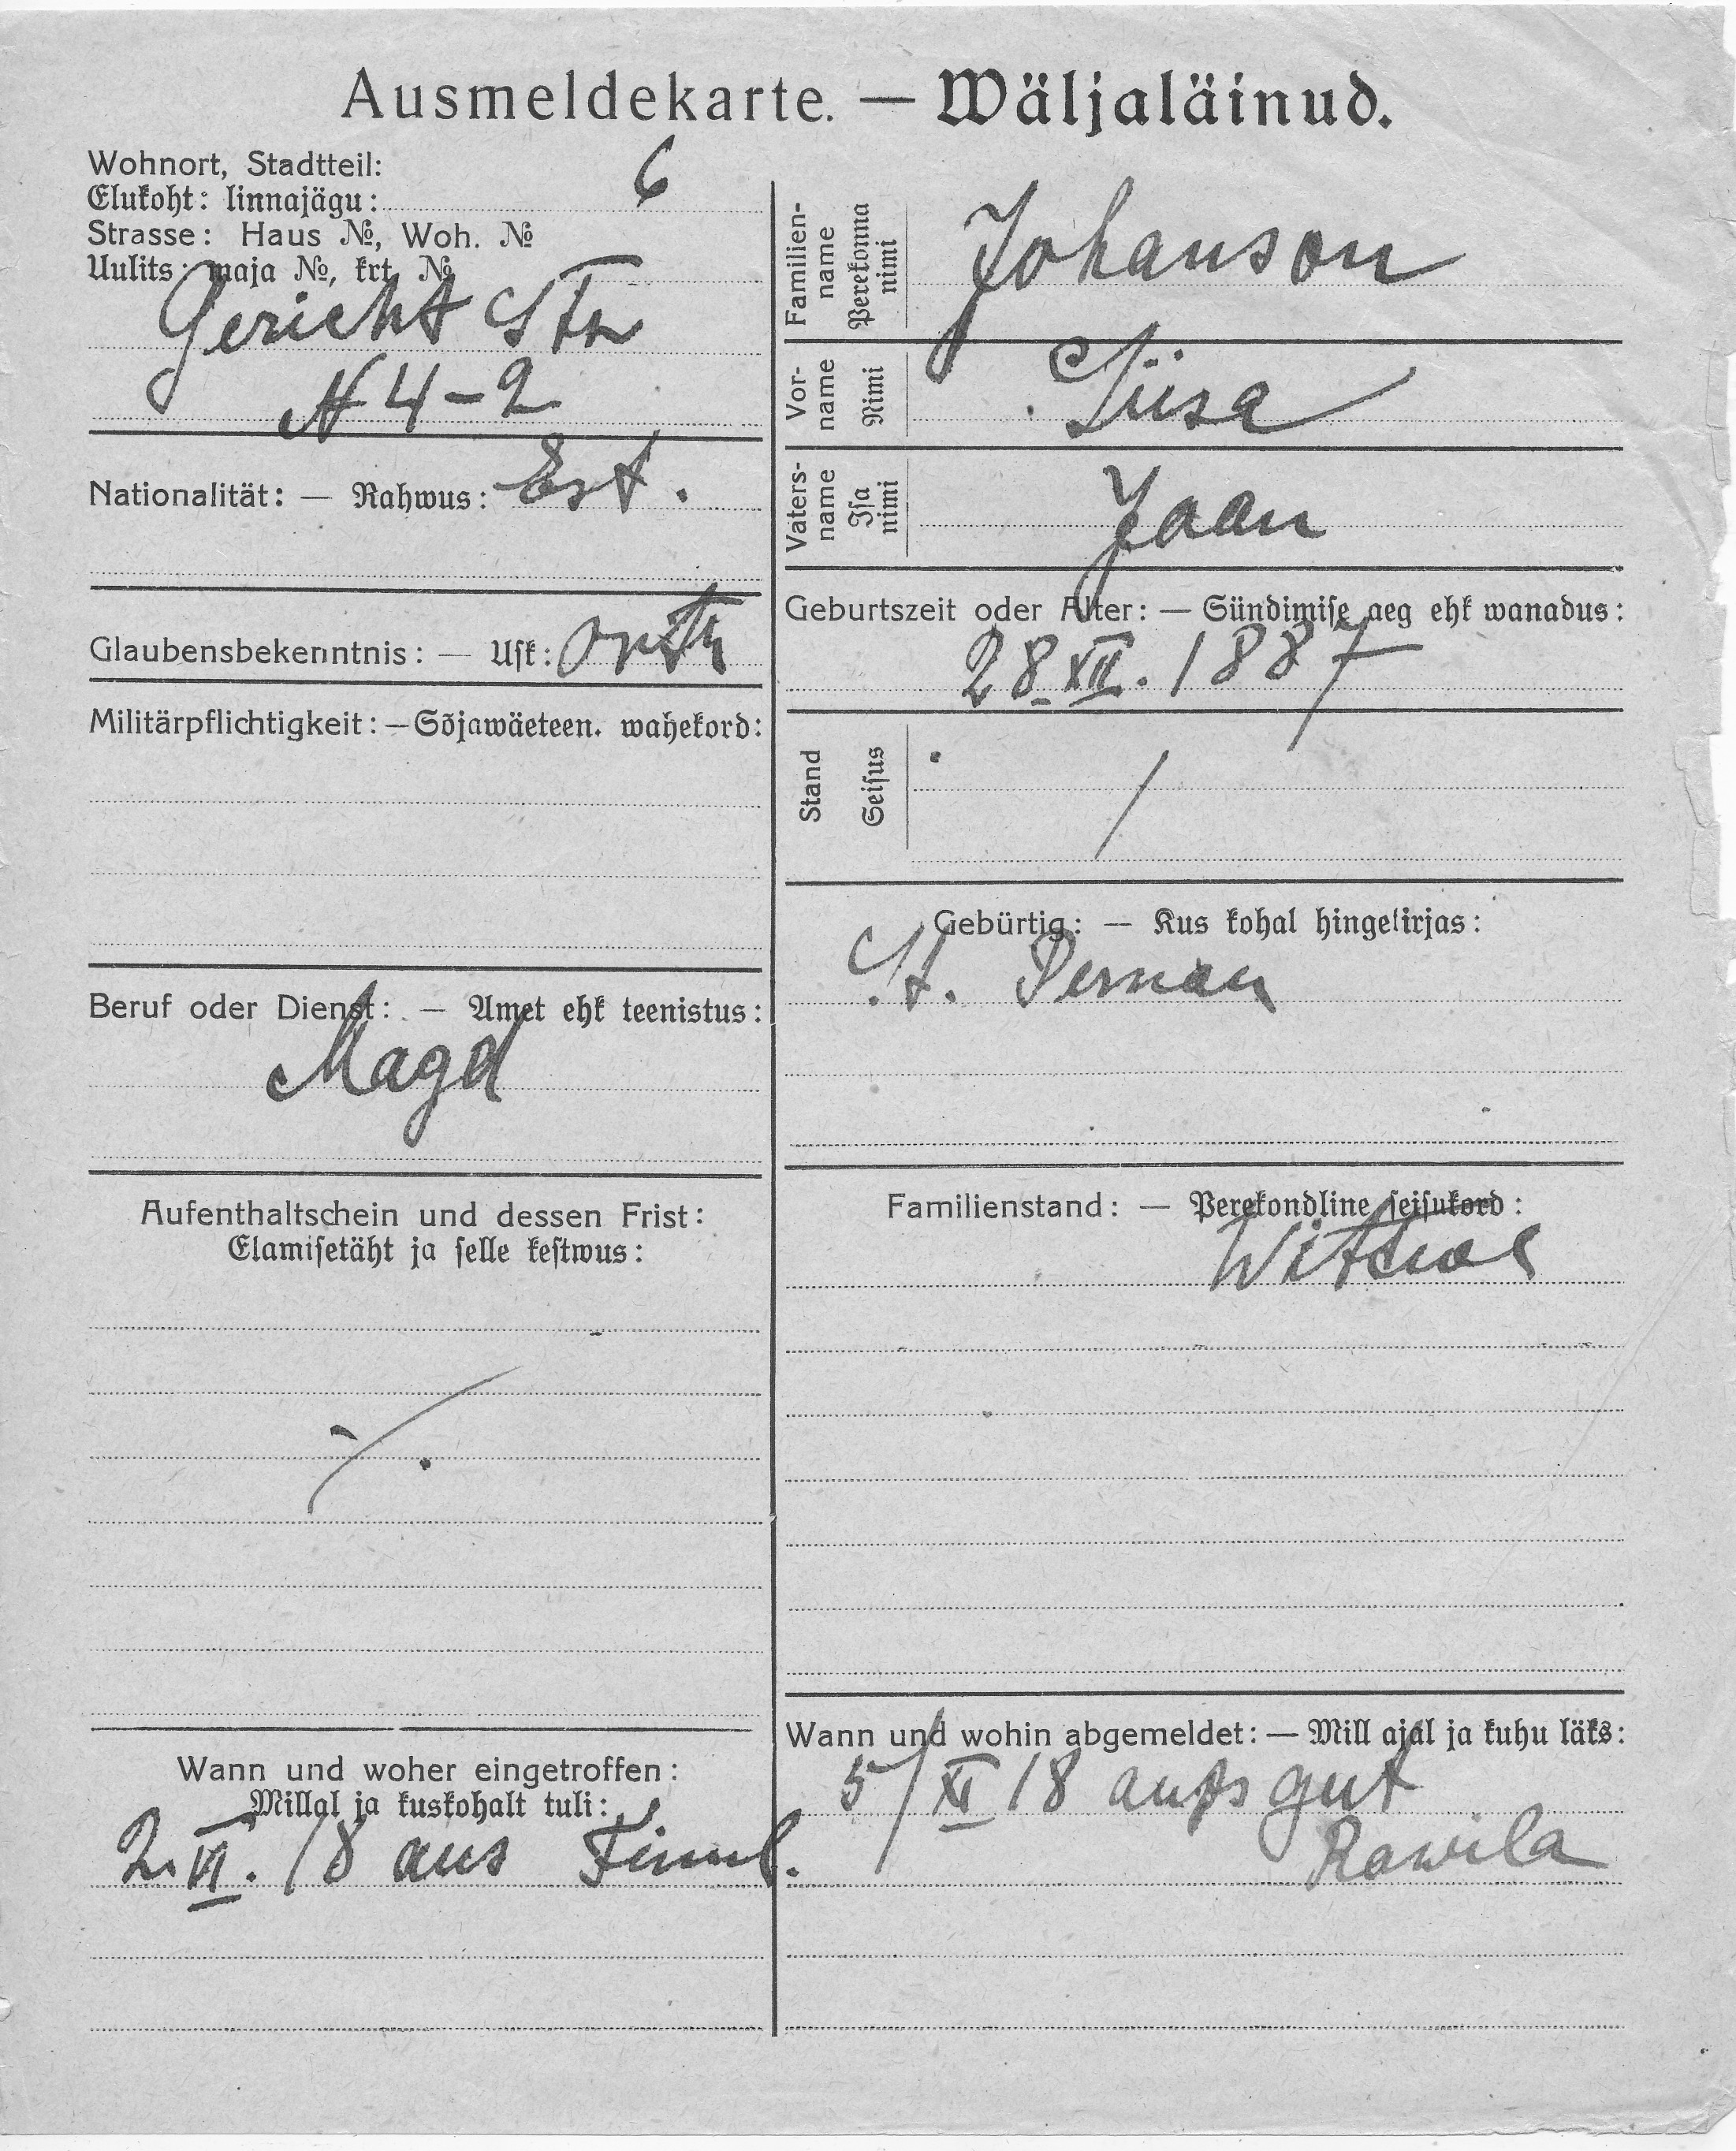 Ausmeldekarte. — Wäljaläinud.
Wohnort, Stadtteil:
Elukoht: linnajägu: 6
Strasse: Haus №, Woh. №
Uulits: maja №, krt. №
Gericht Str
N 4-2
Nationalität: — Rahwus: Est.
Glaubensbekenntnis: — Usk: orth
Militärpflichtigkeit: — Sõjawäeteen. wahekord:
Beruf oder Dienst: — Amet ehk teenistus:
Magd
Aufenthaltschein und dessen Frist:
Elamisetäht ja selle kestwus:
Wann und woher eingetroffen:
Millal ja kuskohalt tuli:
2. VI. 18 aus Finnl.
Familien-
name
Perekonna
nimi
Johanson
Vor-
name
Nimi
Liisa
Vaters-
name
Isa
nimi
Jaan
Geburtszeit oder Alter: — Sündimise aeg ehk wanadus:
28. XII. 1887
Stand
Seisus
/
Gebürtig: — Kus kohal hingekirjas:
St. Pernau
Familienstand: — Perekondline seisukord:
Witwe
Wann und wohin abgemeldet: — Mill ajal ja kuhu läks:
5/XI 18 aufs gut
Rawila